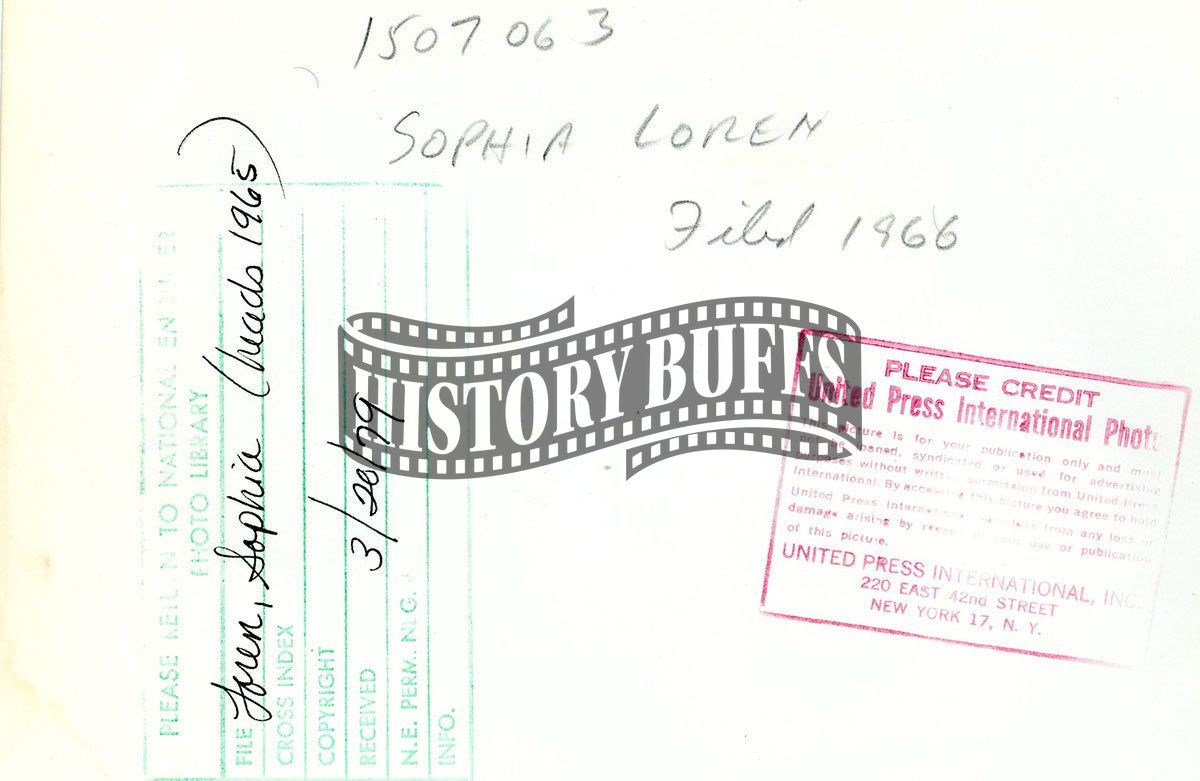 1507063
SOPHIA LOREN
Filed 1966
PLEASE RETURN TO NATIONAL ENQUIRER
PHOTO LIBRARY
FILE Loren, Sophia (heads 1965)
CROSS INDEX
COPYRIGHT
RECEIVED 3/20/79
N.E. PERM. NEG. #
INFO.
HISTORY BUFFS
PLEASE CREDIT
United Press International Photo
This picture is for your publication only and must
not be loaned, syndicated or used for advertising
purposes without written permission from United Press
International. By accepting this picture you agree to hold
United Press International harmless from any loss or
damage arising by reason of your use or publication
of this picture.
UNITED PRESS INTERNATIONAL, INC.
220 EAST 42nd STREET
NEW YORK 17, N. Y.